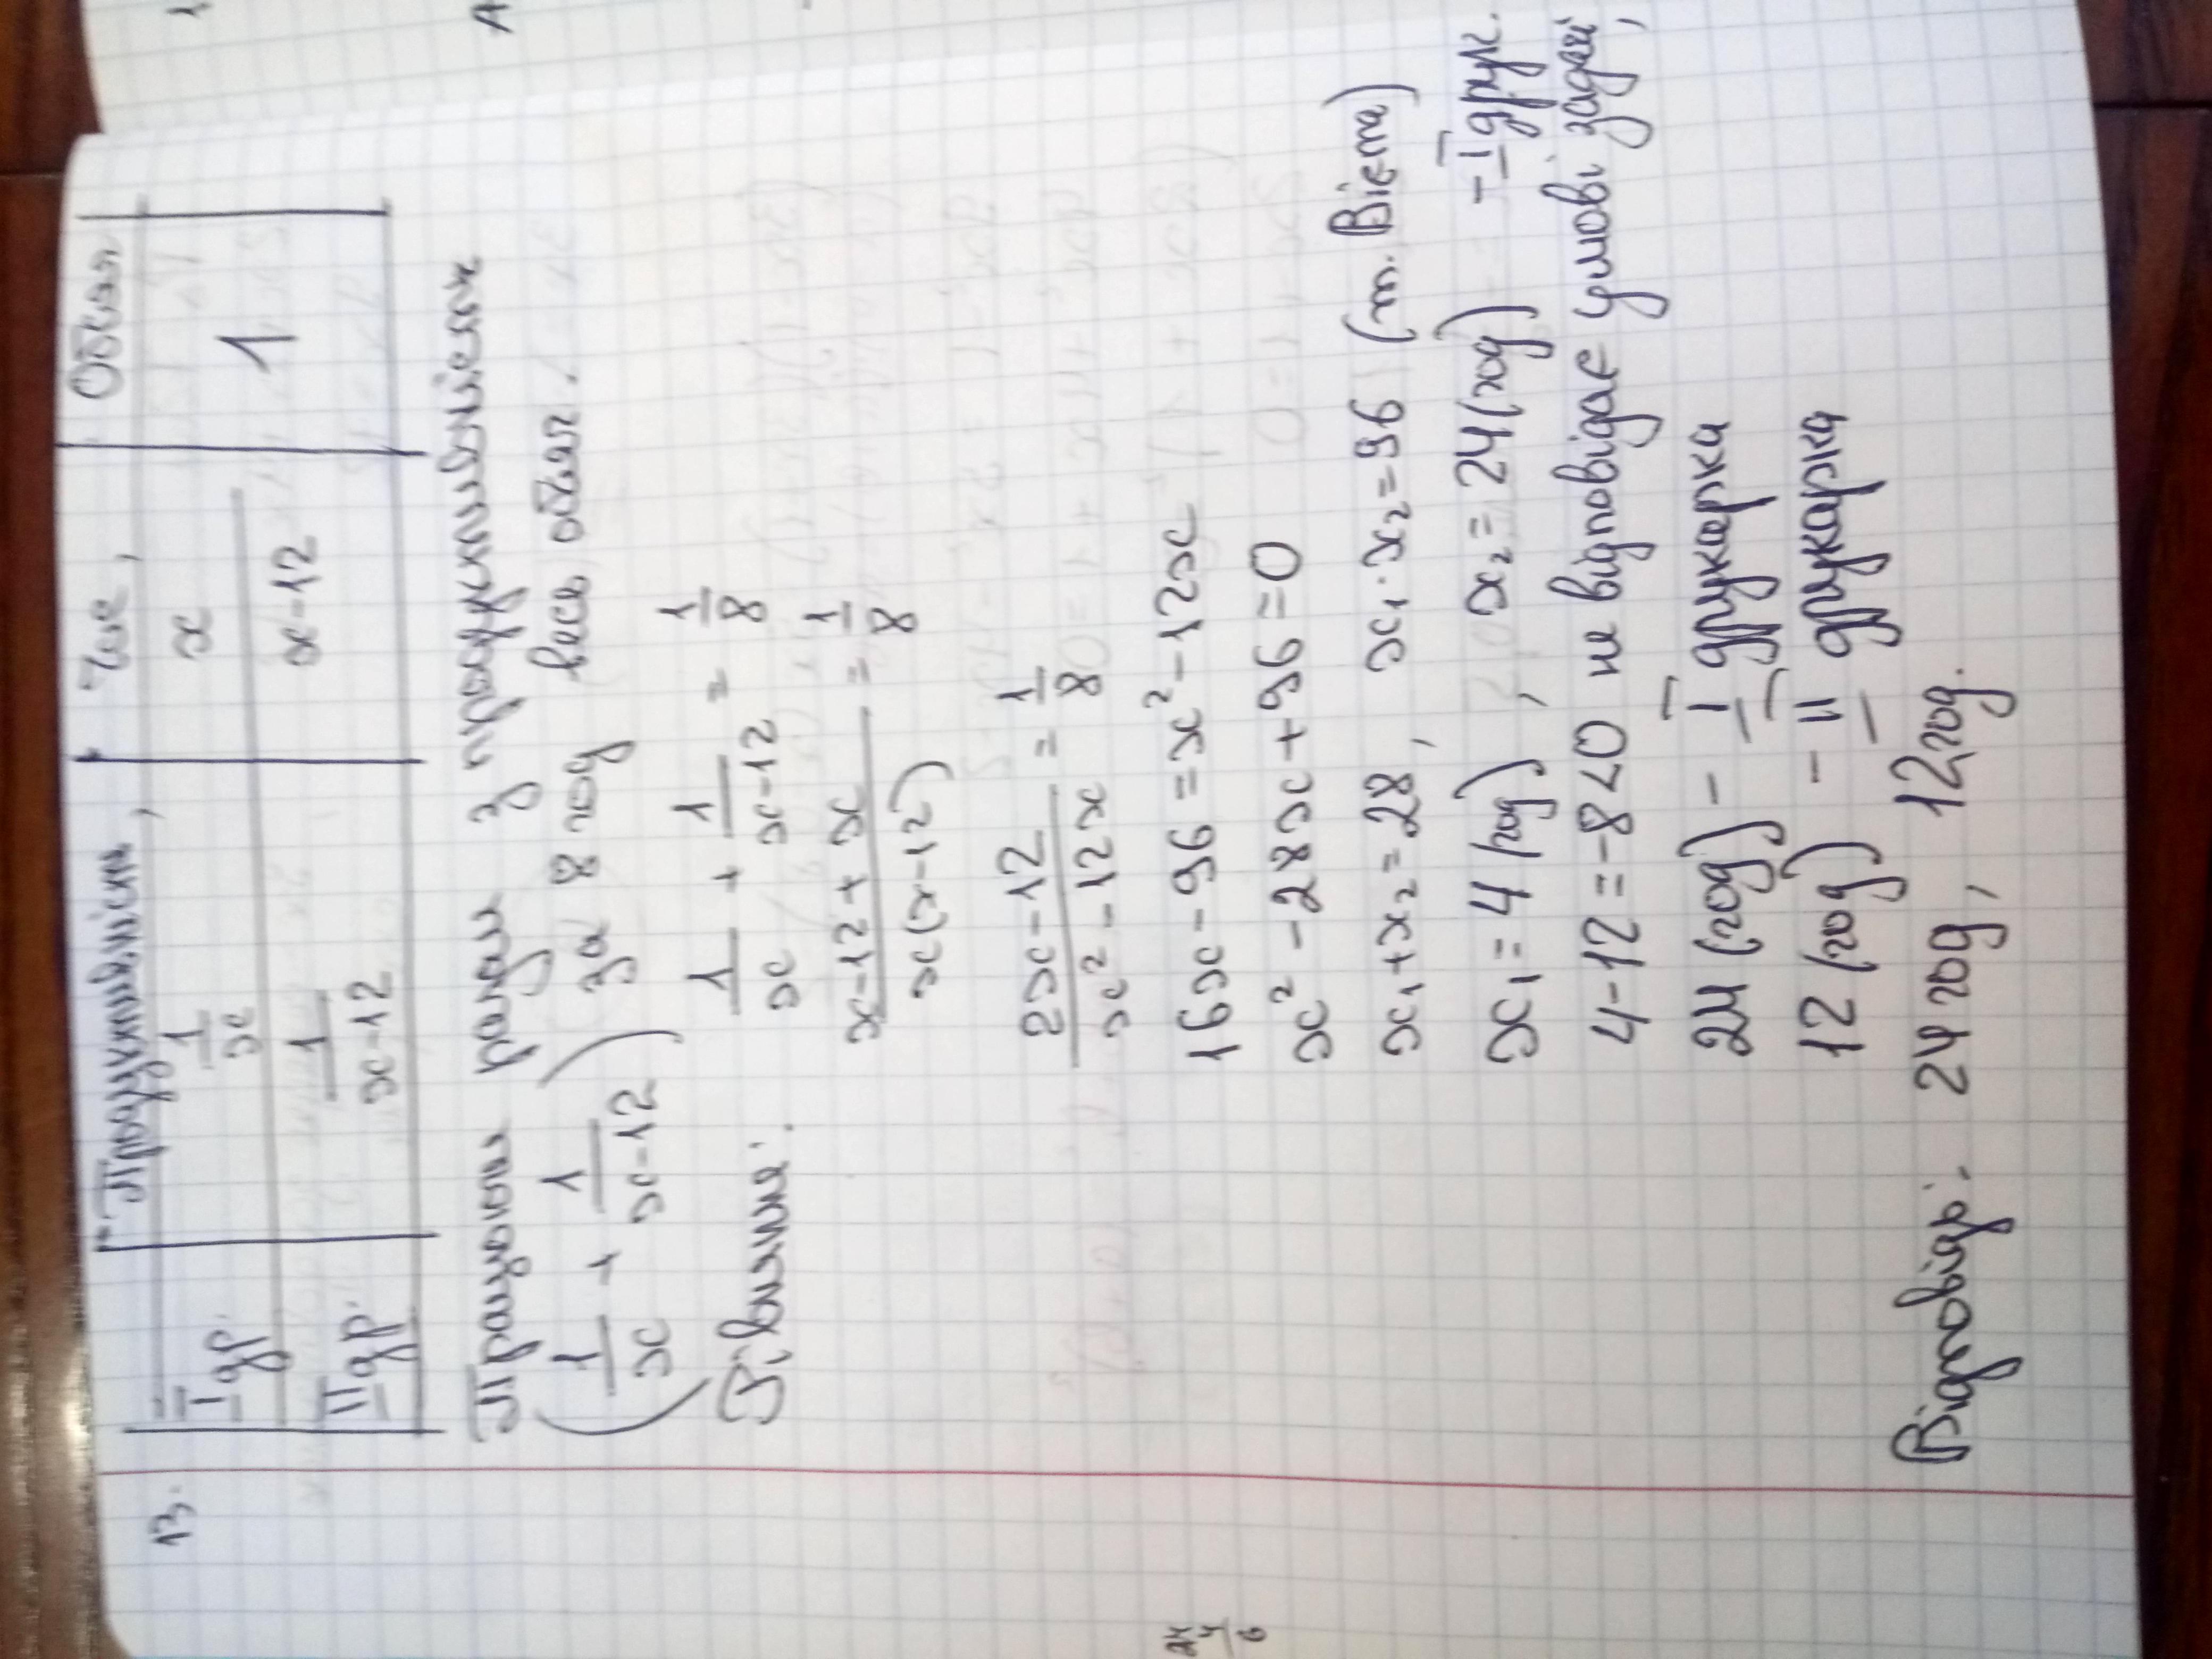 13.
Продуктивність, Час, Обсяг
I др. 1/x x 1
II др. 1/(x-12) x-12
Працюють разом з продуктивністю
(1/x + 1/(x-12)) за 8 год весь обсяг.
Рівняння: 1/x + 1/(x-12) = 1/8
(x-12+x)/(x(x-12)) = 1/8
(2x-12)/(x²-12x) = 1/8
16x-96=x²-12x
x²-28x+96=0
x₁+x₂=28, x₁·x₂=96 (т. Вієта)
x₁=4 (год), x₂=24 (год) - I друк.
4-12=-8<0 не відповідає умові задачі,
24 (год) - I друкарка
12 (год) - II друкарка
Відповідь: 24 год, 12 год.
24
4
6